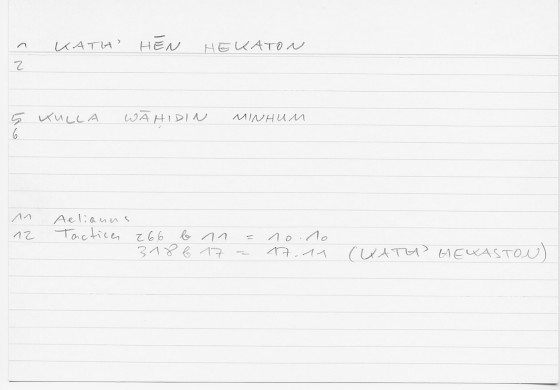 1 KATH' HĒN HEKATON
2
5 KULLA WĀḤIDIN MINHUM
6
11 Aelianus
12 Tactica 266 b 11 = 10.10
318 b 17 = 17.11 (KATH' HEKASTON)